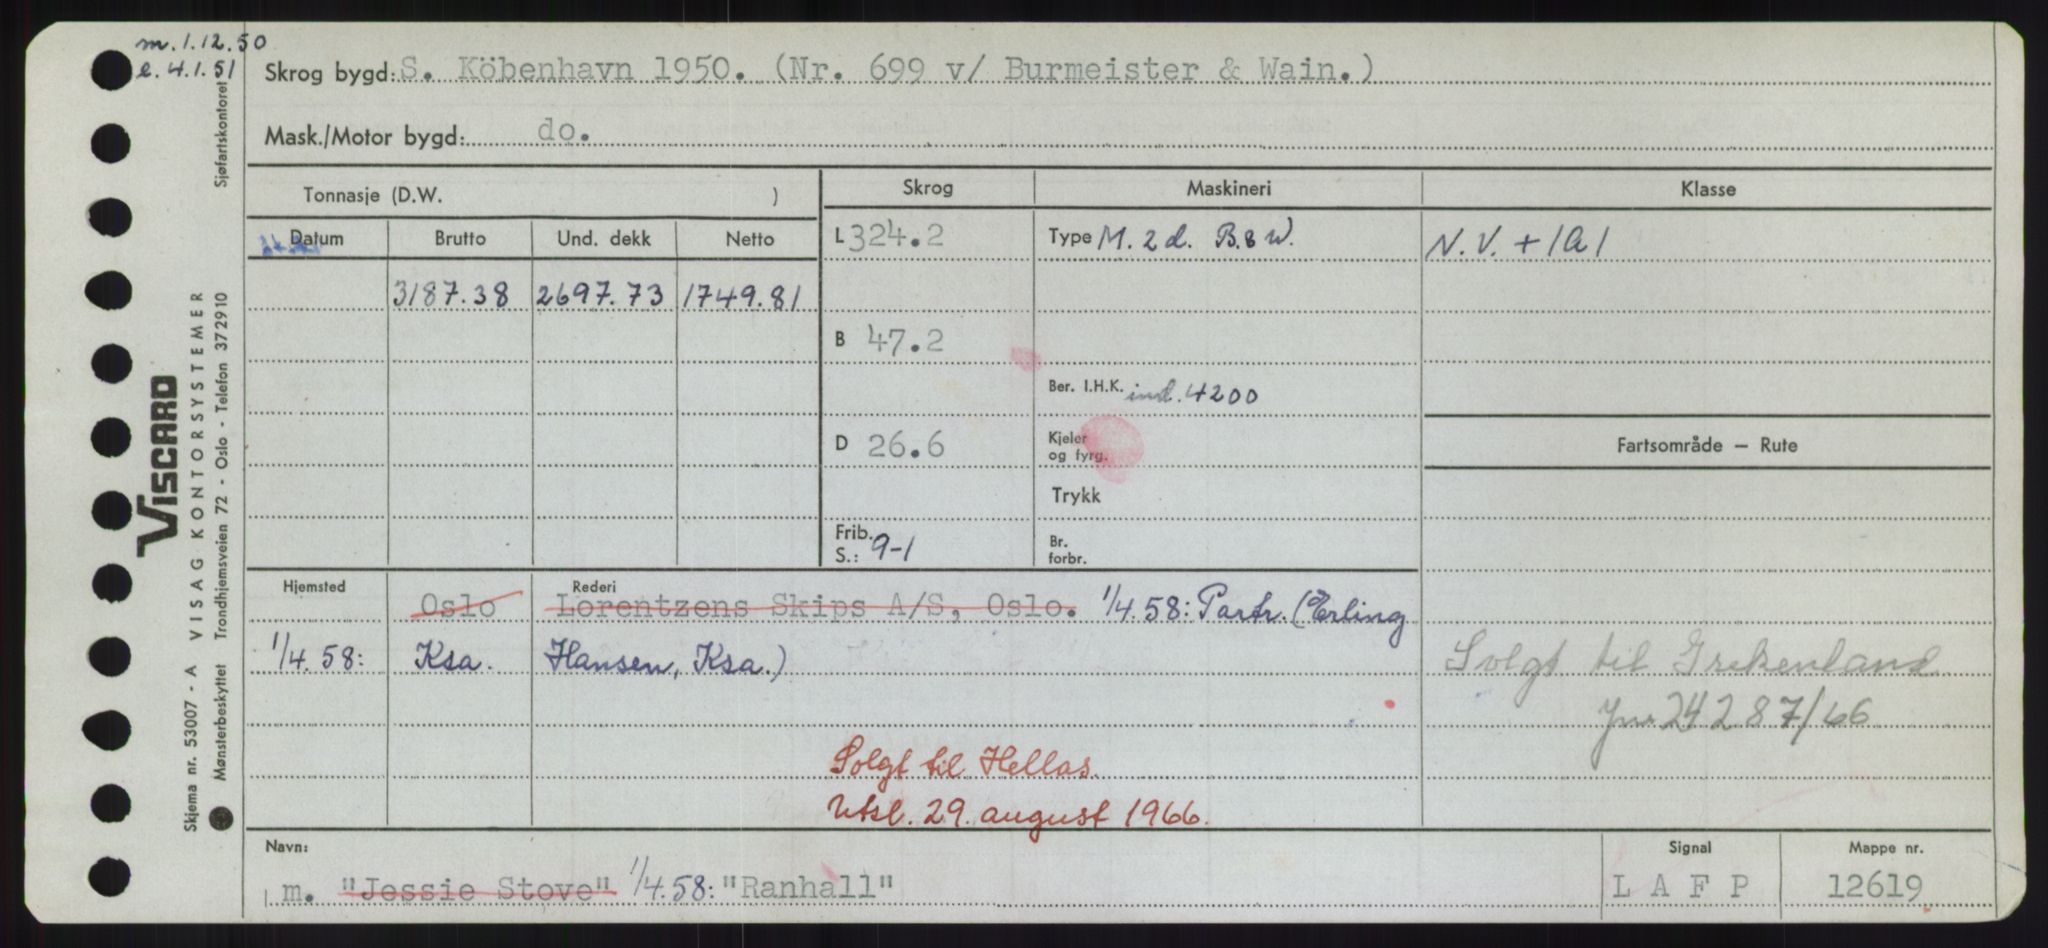 m. 1.12.50
e. 4.1.51
Skrog bygd: S. Köbenhavn 1950. (Nr. 699 v/ Burmeister & Wain.)
Mask./Motor bygd: do.
Tonnasje (D.W. ) Skrog Maskineri Klasse
Datum Brutto Und. dekk Netto L 324.2 Type M. 2 d. B. & W. N.V. + 1A1
3187.38 2697.73 1749.81
B 47.2
Ber. I.H.K. ind. 4200
D 26.6 Kjeler og fyrg. Fartsområde — Rute
Trykk
Frib. S.: 9-1 Br. forbr.
Hjemsted Oslo Rederi Lorentzens Skips A/S, Oslo. 1/4.58: Partr. (Erling
1/4.58: Ksa. Hansen, Ksa.)
Solgt til Grekenland
jnr 24287/66
Solgt til Hellas.
Utsl. 29. august 1966.
Navn: Signal Mappe nr.
m. "Jessie Stove" 1/4.58: "Ranhall" L A F P 12619
Skjema nr. 53007 - A VISAG KONTORSYSTEMER Sjøfartskontoret
Mønsterbeskyttet Trondhjemsveien 72 - Oslo - Telefon 372910
VISCARD